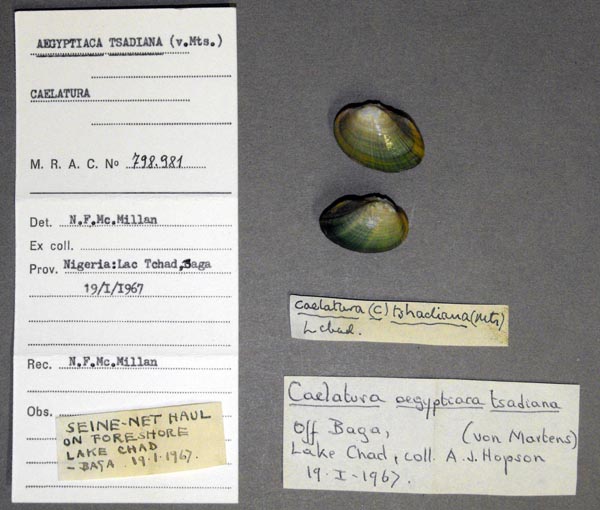 AEGYPTIACA TSADIANA (v.Mts.)
CAELATURA
M. R. A. C. No 798.981
Det. N.F.Mc.Millan
Ex coll.
Prov. Nigeria:Lac Tchad,Baga
19/I/1967
Rec. N.F.Mc.Millan
Obs.
SEINE-NET HAUL
ON FORESHORE
LAKE CHAD
- BAGA 19.1.1967.
Caelatura (C) tshadiana (Mts)
L chad.
Caelatura aegyptiaca tsadiana
Off Baga, (von Martens)
Lake Chad, coll. A.J. Hopson
19.I-1967.